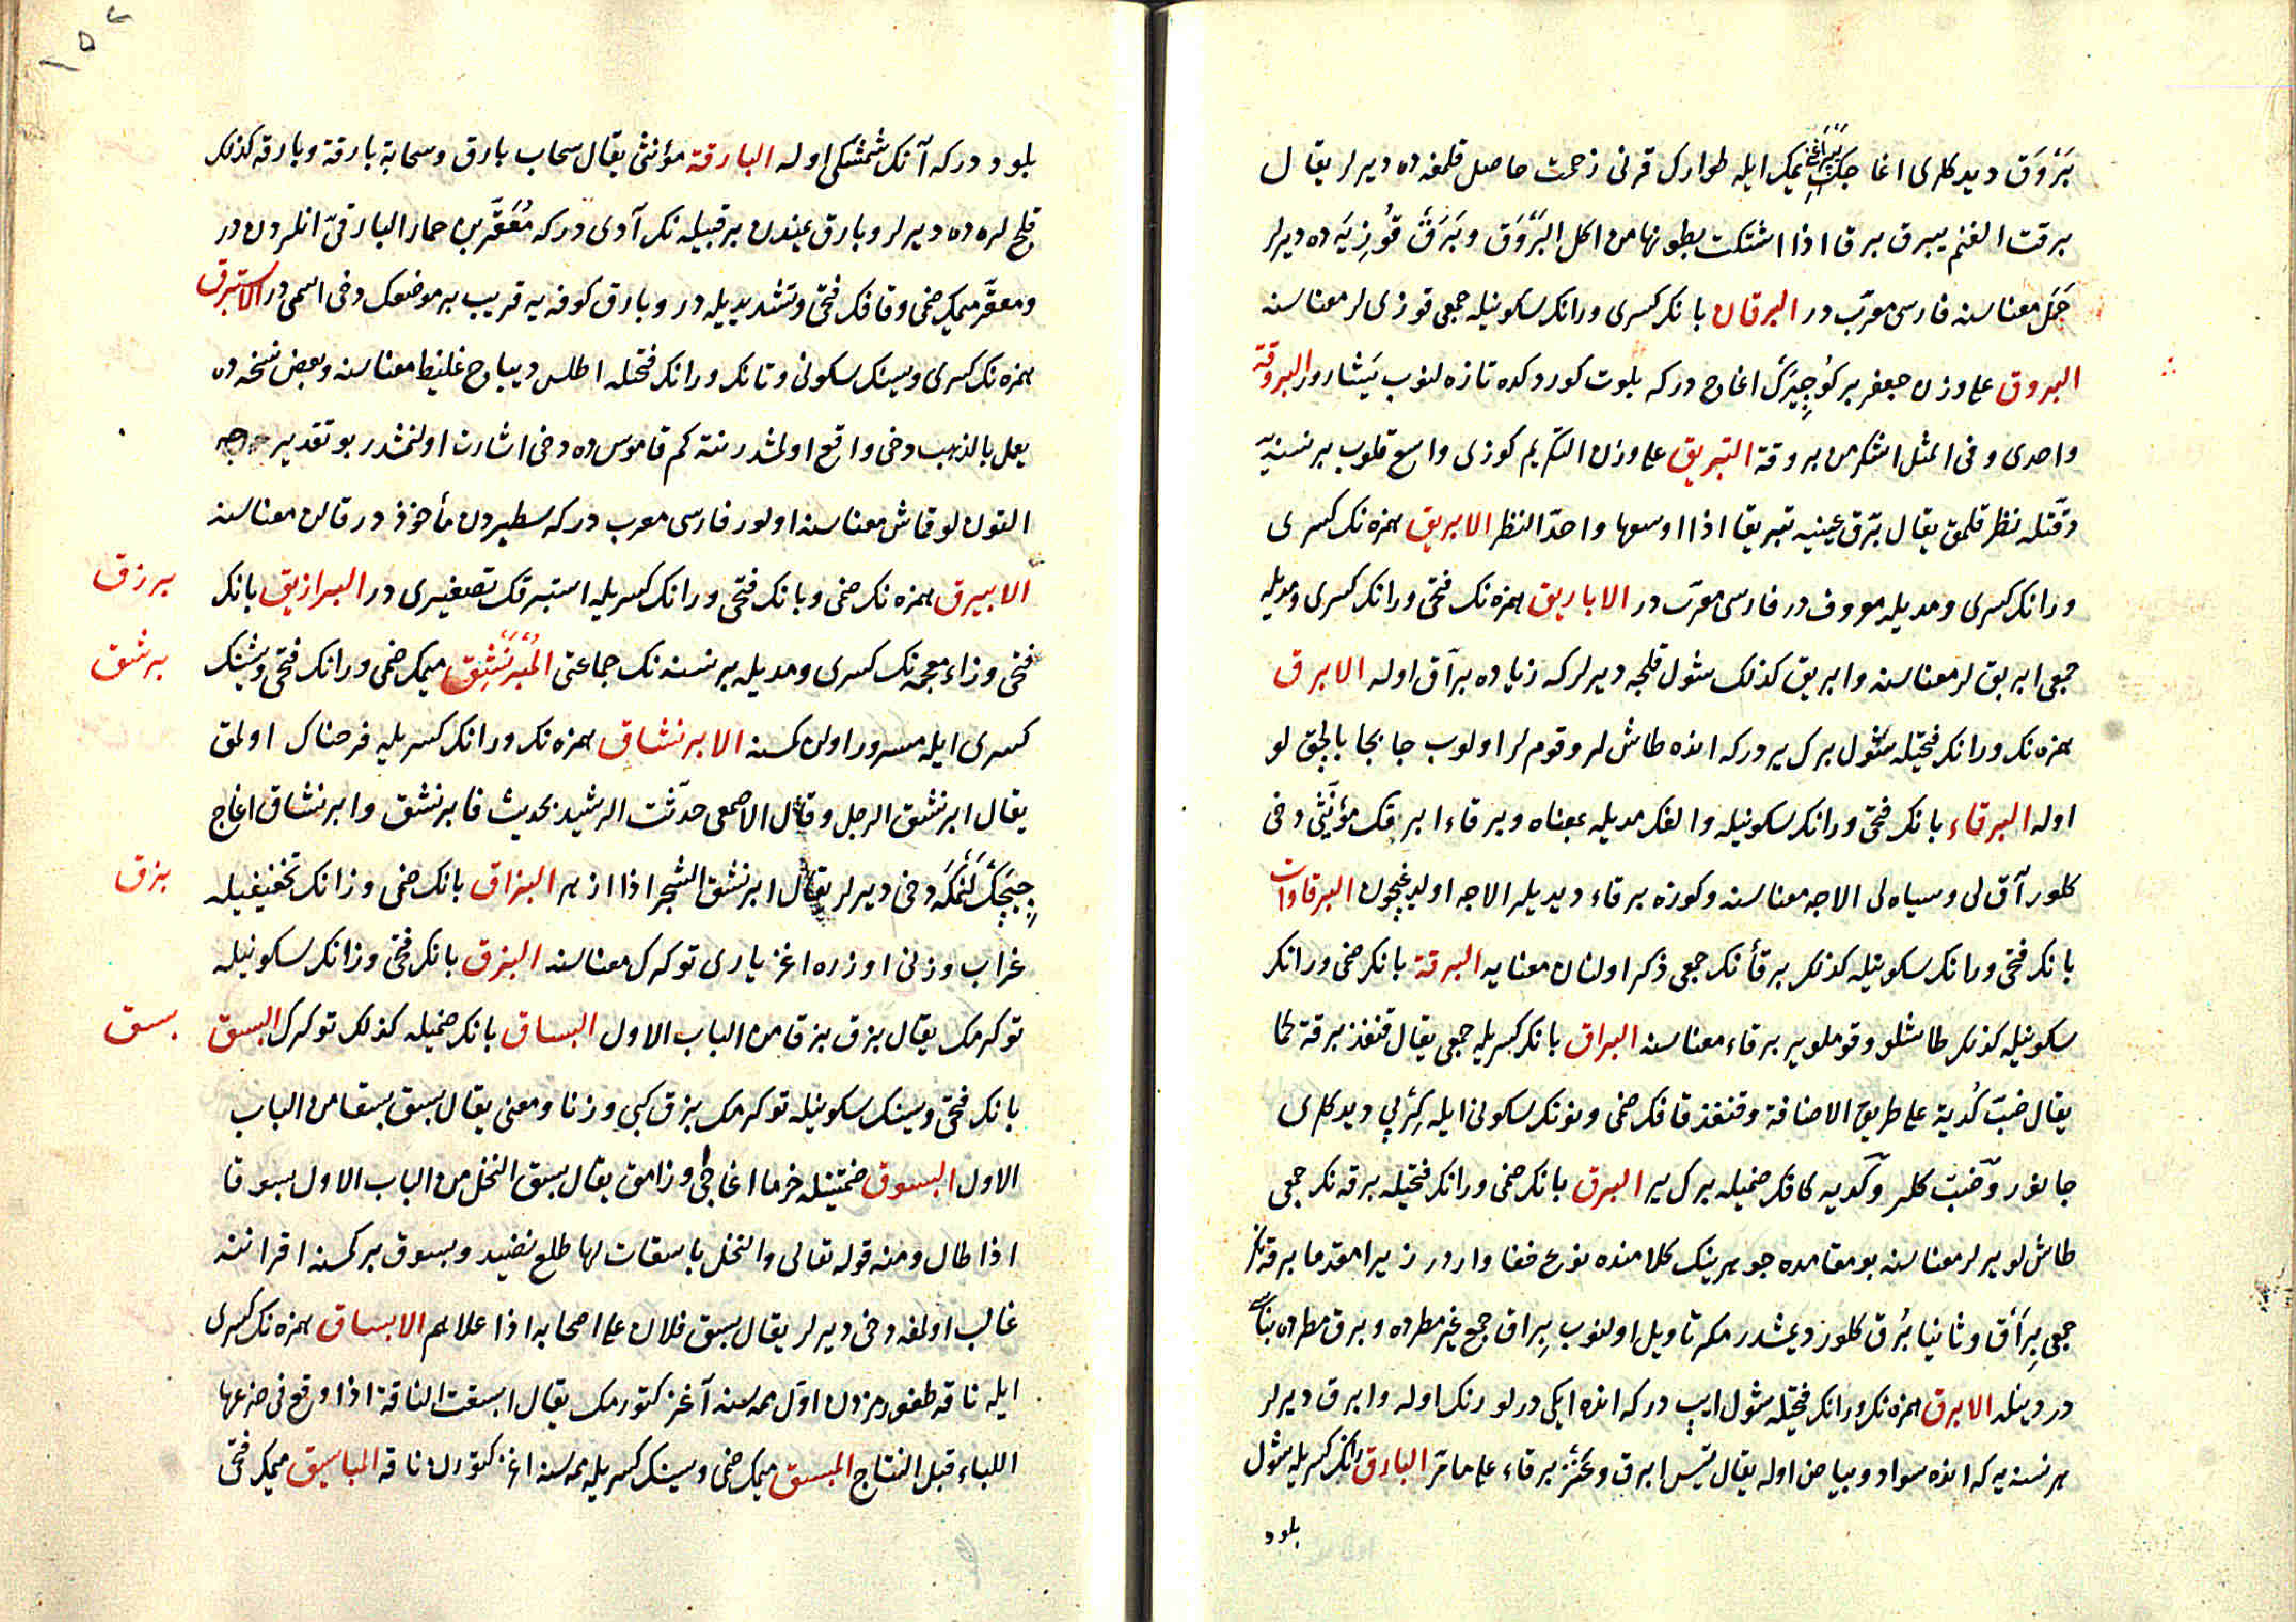 بَرْوَق ديدكلرى اغاجك يپراغن يمك ايله طوارك قرنى زحمت حاصل قلمغه ده ديرلر يقال
برقت الغنم يبرق برق اذا اشتكت بطونها من اكل البَرْوَق وبَرَق قُوزِيَه ده ديرلر
حَمَل معناسنه فارسى معرّب در البرقان بانك كسرى ورانك سكونيله جمعى قوزى لر معناسنه
البروق على وزن جعفر بر كُوجِيرَك اغاج دركه بلوت كوردكده تازه لنوب يَشارور البروقة
واحدى وفى المثل اشكر من بروقة التبريق على وزن التكريم كوزى واسع قلوب بر نسنيه
دقّتله نظر قلمق يقال برّق عينيه تبريقا اذا اوسعها واحدّ النظر الابريق همزه نك كسرى
ورانك كسرى ومديله معروف در فارسى معرّب در الاباريق همزه نك فتحى ورانك كسرى ومديله
جمعى ابريق لر معناسنه وابريق كذلك شول قلجه ديرلر كه زياده برّاق اوله الابرق
همزه نك ورانك فتحيله شول برك ير دركه انده طاش لر وقوم لر اولوب جابجا بالچق لو
اوله البرقاء بانك فتحى ورانك سكونيله والفك مديله بمعناه وبرقاء ابرقك مؤنّثى دخى
كلور آق لى وسياه لى الاجه معناسنه وكوزه برقاء ديديلر الاجه اولديغيچون البرقاوات
بانك فتحى ورانك سكونيله كذلك برقأنك جمعى ذكر اولنان معنايه البرقة بانك ضمى ورانك
سكونيله كذلك طاشلو وقوملو ير برقاء معناسنه البراق بانك كسريله جمعى يقال قنفذ برقة كما
يقال ضبّ كُدية على طريق الاضافة وقنفذ قافك ضمى ونونك سكونى ايله كِرْپى ديدكلرى
جانور وضبّ كلر وكديه كافك ضميله برك ير البرق بانك ضمى ورانك فتحيله برقه نك جمعى
طاش لو يرلر معناسنه بو مقامده جوهرينك كلامنده نوع خفا واردر زيرا مقدما برقه نك
جمعى بِرَاق وثانيا بُرَق كلور ديمشدر مكر تاويل اولنوب بِراق جمع غير مطرده وبرق مطرده بناسى
در دينله الابرق همزه نك ورانك فتحيله شول ايپ دركه انده ايكى درلو رنك اوله وابرق ديرلر
هر نسنيه كه انده سواد وبياض اوله يقال تيس ابرق وعنز برقاء على ما مرّ البارق رانك كسريله شول
بلود
١٥٢
بلود دركه آنك شمشكى اوله البارقة مؤنثى يقال سحاب بارق وسحابة بارقة وبارقه كذلك
قلج لره ده ديرلر وبارق يمندن بر قبيله نك آدى دركه مُعَقَّر بن حمار البارقىّ انلردن در
ومعقَّر ميمك ضمى وقافك فتحى وتشديديله در وبارق كوفه يه قريب بر موضعك دخى اسمى در الاستبرق
همزه نك كسرى وسينك سكونى وتانك ورانك فتحله اطلس ديباج غليظ معناسنه وبعض نسخه ده
يعمل بالذهب دخى واقع اولمشدر نته كم قاموس ده دخى اشارت اولنمشدر بو تقديرجه
التون لو قماش معناسنه اولور فارسى معرب دركه سطبردن مأخوذ در قالن معناسنه
الابيرق همزه نك ضمى وبانك فتحى ورانك كسريله استبرقك تصغيرى در البرازيق بانك
برزق
فتحى وزاء معجمه نك كسرى ومديله بر نسنه نك جماعتى المُبْرَنْشِق ميمك ضمى ورانك فتحى وشينك
برشق
كسرى ايله مسرور اولن كمسنه الابرنشاق همزه نك ورانك كسريله فرحناك اولمق
يقال ابرنشق الرجل وقال الاصمعى حدّثت الرشيد بحديث فابرنشق وابرنشاق اغاج
چيچكلنمكه دخى ديرلر يقال ابرنشق الشجر اذا ازهر البزاق بانك ضمى وزانك تخفيفيله
بزق
غراب وزنى اوزره اغز يارى توكرك معناسنه البزق بانك فتحى وزانك سكونيله
توكرمك يقال بزق بزقا من الباب الاول البساق بانك ضميله كذلك توكرك البسق
بسق
بانك فتحى وسينك سكونيله توكرمك بزق كبى وزنا ومعنى يقال بسق بسقا من الباب
الاول البسوق ضمتينله خرما اغاجى اوزامق يقال بسق النخل من الباب الاول بسوقا
اذا طال ومنه قوله تعالى والنخل باسقات لها طلع نضيد وبسوق بر كمسنه اقراننه
غالب اولمغه دخى ديرلر يقال بسق فلان على اصحابه اذا علاهم الابساق همزه نك كسرى
ايله ناقه طغورمزدن اوّل ممه سنه آغز كتورمك يقال ابسقت الناقة اذا وقع فى ضرعها
اللباء قبل النتاج المبسق ميمك ضمى وسينك كسريله ممه سنه اغز كتورن ناقه المباسيق ميمك فتحى